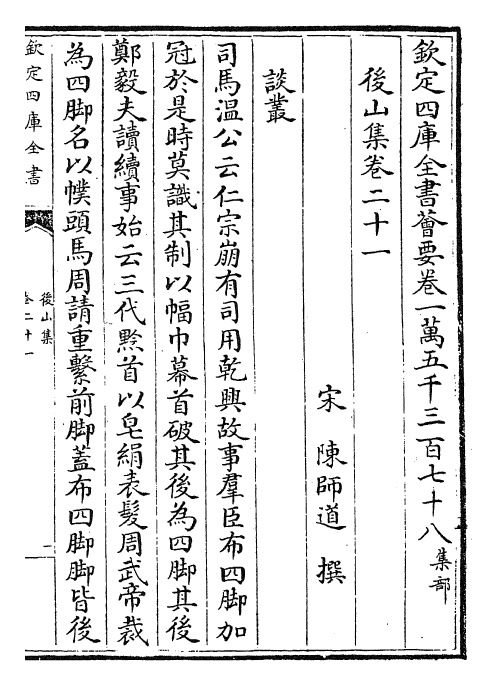 欽定四庫全書薈要卷一萬五千三百七十八集部
後山集卷二十一
宋　陳師道　撰
談叢
司馬溫公云仁宗崩有司用乾興故事羣臣布四脚加
冠於是時莫識其制以幅巾幕首破其後為四脚其後
鄭毅夫讀續事始云三代黔首以皂絹裹髮周武帝裁
為四脚名以幞頭馬周請重繫前脚蓋布四脚脚皆後
欽定四庫全書
後山集
卷二十一